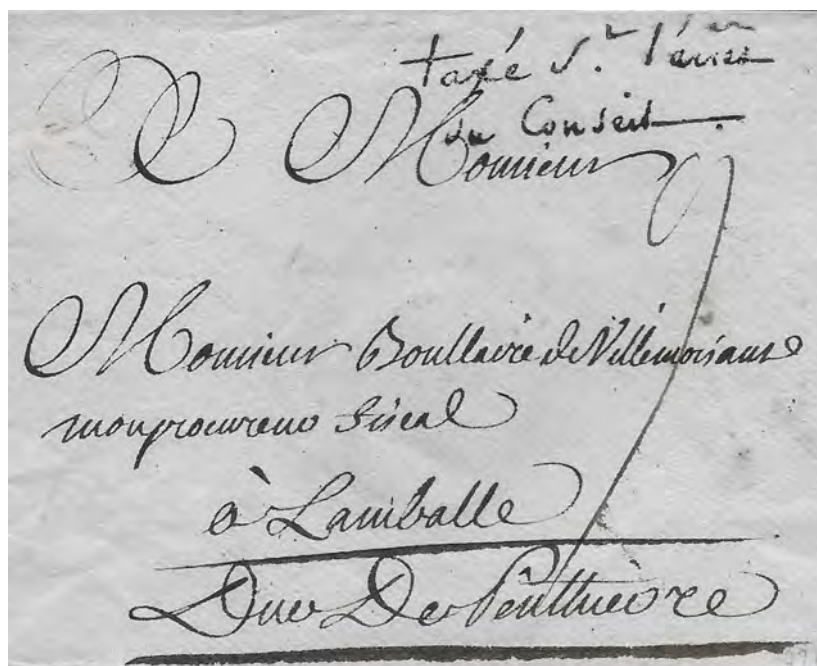 taxé St. l'arrêt
du Conseil
A Monsieur
Monsieur Boullaire de Villemoisans
mon procureur fiscal
à Lamballe
Duc De Penthièvre